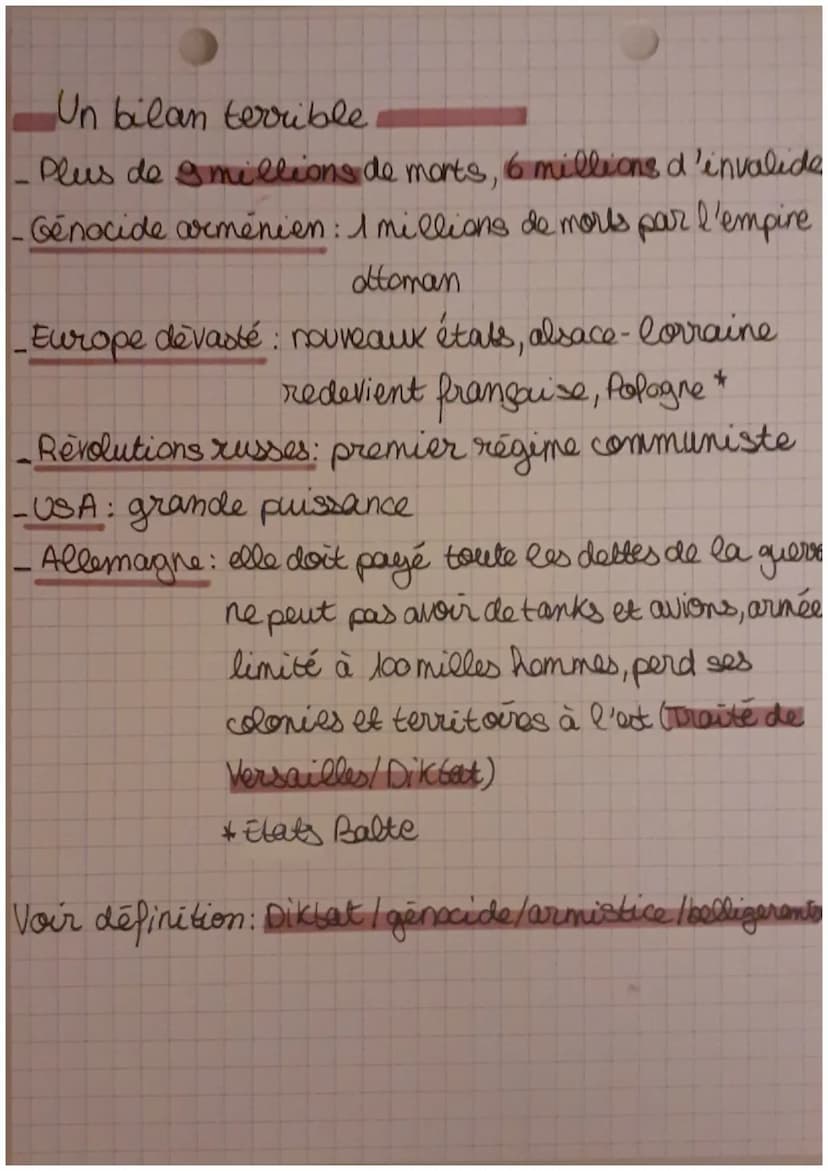 Un bilan terrible
- Plus de 9 millions de morts, 6 millions d'invalide
- Génocide arménien : 1 millions de morts par l'empire
ottoman
- Europe dévasté : nouveaux états, alsace-lorraine
redevient française, Pologne *
- Révolutions russes : premier régime communiste
- USA : grande puissance
- Allemagne : elle doit payé toute les dettes de la guerre
ne peut pas avoir de tanks et avions, armée
limité à 100 milles hommes, perd ses
colonies et territoires à l'est (Traité de
Versailles/Diktat)
* Etats Balte
Voir définition : Diktat/génocide/armistice/belligerants